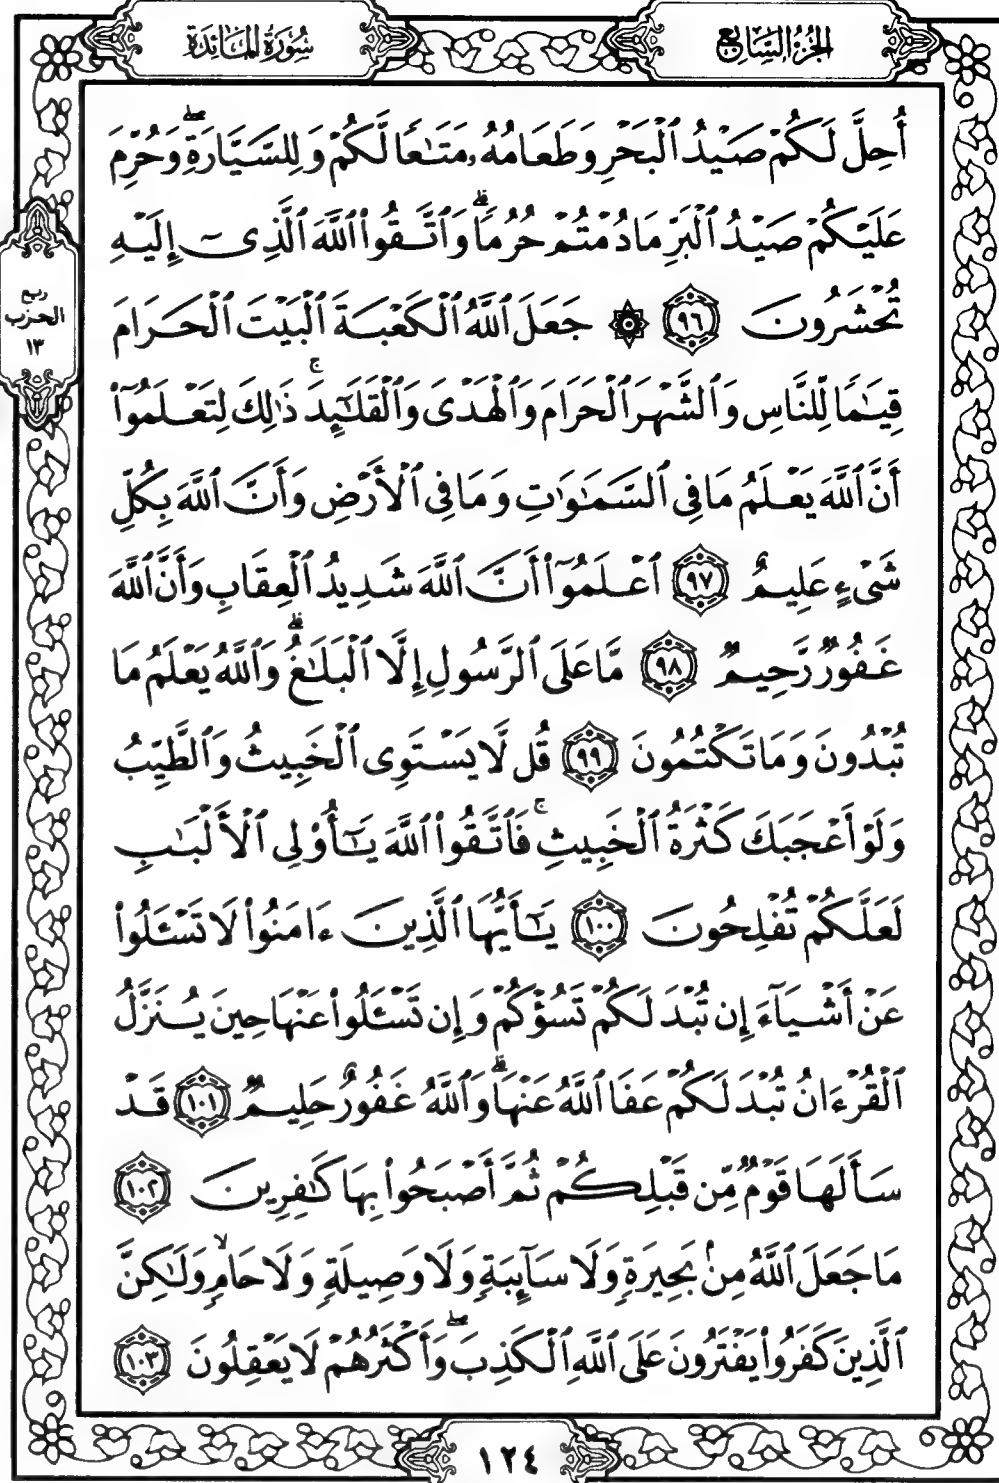 الجُزْءُ السَّابِع
سُورَةُ المَائِدَة
أُحِلَّ لَكُمْ صَيْدُ ٱلْبَحْرِ وَطَعَامُهُۥ مَتَـٰعًا لَّكُمْ وَلِلسَّيَّارَةِ ۖ وَحُرِّمَ
عَلَيْكُمْ صَيْدُ ٱلْبَرِّ مَا دُمْتُمْ حُرُمًا ۗ وَٱتَّقُوا۟ ٱللَّهَ ٱلَّذِىٓ إِلَيْهِ
تُحْشَرُونَ ٩٦ ۞ جَعَلَ ٱللَّهُ ٱلْكَعْبَةَ ٱلْبَيْتَ ٱلْحَرَامَ
قِيَـٰمًا لِّلنَّاسِ وَٱلشَّهْرَ ٱلْحَرَامَ وَٱلْهَدْىَ وَٱلْقَلَـٰٓئِدَ ۚ ذَٰلِكَ لِتَعْلَمُوٓا۟
أَنَّ ٱللَّهَ يَعْلَمُ مَا فِى ٱلسَّمَـٰوَٰتِ وَمَا فِى ٱلْأَرْضِ وَأَنَّ ٱللَّهَ بِكُلِّ
شَىْءٍ عَلِيمٌ ٩٧ ٱعْلَمُوٓا۟ أَنَّ ٱللَّهَ شَدِيدُ ٱلْعِقَابِ وَأَنَّ ٱللَّهَ
غَفُورٌ رَّحِيمٌ ٩٨ مَّا عَلَى ٱلرَّسُولِ إِلَّا ٱلْبَلَـٰغُ ۗ وَٱللَّهُ يَعْلَمُ مَا
تُبْدُونَ وَمَا تَكْتُمُونَ ٩٩ قُل لَّا يَسْتَوِى ٱلْخَبِيثُ وَٱلطَّيِّبُ
وَلَوْ أَعْجَبَكَ كَثْرَةُ ٱلْخَبِيثِ ۚ فَٱتَّقُوا۟ ٱللَّهَ يَـٰٓأُو۟لِى ٱلْأَلْبَـٰبِ
لَعَلَّكُمْ تُفْلِحُونَ ١٠٠ يَـٰٓأَيُّهَا ٱلَّذِينَ ءَامَنُوا۟ لَا تَسْـَٔلُوا۟
عَنْ أَشْيَآءَ إِن تُبْدَ لَكُمْ تَسُؤْكُمْ وَإِن تَسْـَٔلُوا۟ عَنْهَا حِينَ يُنَزَّلُ
ٱلْقُرْءَانُ تُبْدَ لَكُمْ عَفَا ٱللَّهُ عَنْهَا ۗ وَٱللَّهُ غَفُورٌ حَلِيمٌ ١٠١ قَدْ
سَأَلَهَا قَوْمٌ مِّن قَبْلِكُمْ ثُمَّ أَصْبَحُوا۟ بِهَا كَـٰفِرِينَ ١٠٢
مَا جَعَلَ ٱللَّهُ مِنۢ بَحِيرَةٍ وَلَا سَآئِبَةٍ وَلَا وَصِيلَةٍ وَلَا حَامٍ ۙ وَلَـٰكِنَّ
ٱلَّذِينَ كَفَرُوا۟ يَفْتَرُونَ عَلَى ٱللَّهِ ٱلْكَذِبَ ۖ وَأَكْثَرُهُمْ لَا يَعْقِلُونَ ١٠٣
ربع
الحزب
١٣
١٢٤